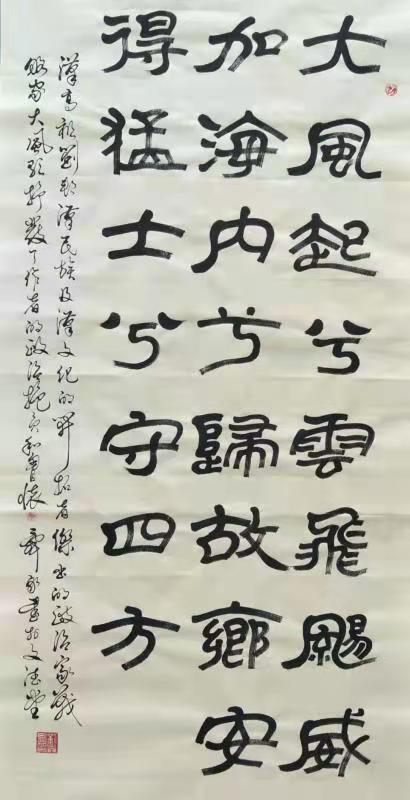 大風起兮雲飛颺威
加海内兮歸故鄉安
得猛士兮守四方
漢高祖劉邦漢民族及漢文化的開拓者傑出的政治家戰
略家大風歌抒發了作者的政治抱負和胸懷
書於文德堂